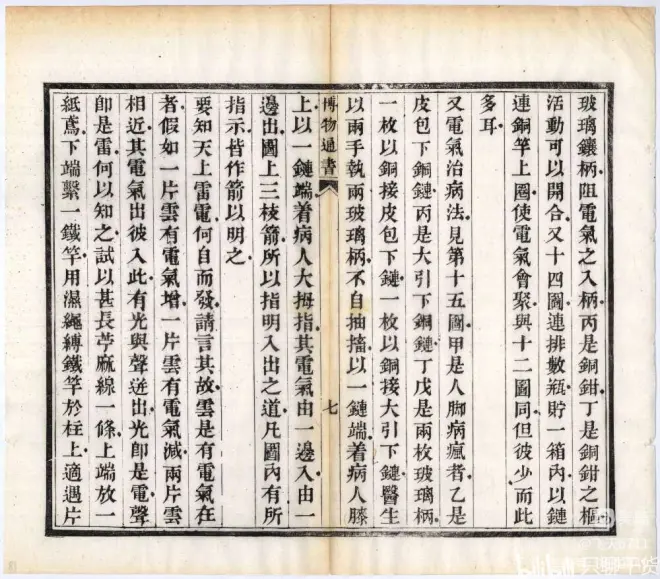 玻璃鑲柄阻電氣之入柄丙是銅鉗丁是銅鉗之樞
活動可以開合又十四圖連排數瓶貯一箱內以鏈
連銅竿上圈使電氣會聚與十二圖同但彼少而此
多耳
又電氣治病法見第十五圖甲是人脚病瘋者乙是
皮包下銅鏈丙是大引下銅鏈丁戊是兩枚玻璃柄
一枚以銅接皮包下鏈一枚以銅接大引下鏈醫生
以兩手執兩玻璃柄不自抽搐以一鏈端着病人膝
博物通書
七
上以一鏈端着病人大拇指其電氣由一邊入由一
邊出圖上三枝箭所以指明入出之道凡圖內有所
指示皆作箭以明之
要知天上雷電何自而發請言其故雲是有電氣在
者假如一片雲有電氣增一片雲有電氣減兩片雲
相近其電氣出彼入此有光與聲迸出光卽是電聲
卽是雷何以知之試以甚長苧麻線一條上端放一
紙鳶下端繫一鐵竿用濕繩縛鐵竿於柱上適遇片
只聊干货